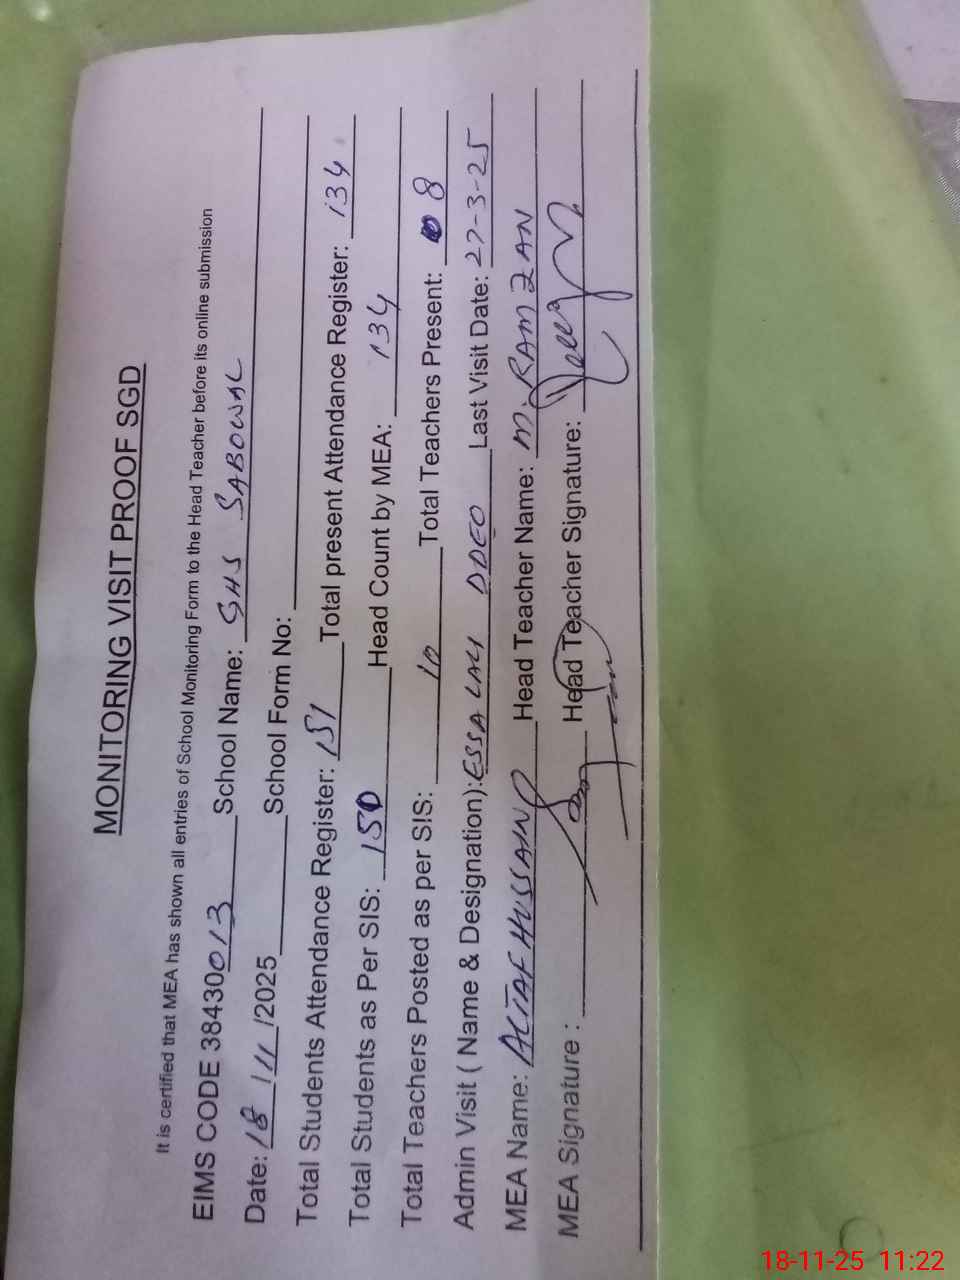 MONITORING VISIT PROOF SGD
It is certified that MEA has shown all entries of School Monitoring Form to the Head Teacher before its online submission
EIMS CODE 38430013 School Name: GHS SABOWAL
Date: 18/11/2025 School Form No:
Total Students Attendance Register: 151 Total present Attendance Register: 134
Total Students as Per SIS: 150 Head Count by MEA: 134
Total Teachers Posted as per SIS: 10 Total Teachers Present: 8
Admin Visit ( Name & Designation): ESSA LALI DDEO Last Visit Date: 27-3-25
MEA Name: ALTAF HUSSAIN Head Teacher Name: M. RAMZAN
MEA Signature : Head Teacher Signature:
18-11-25 11:22